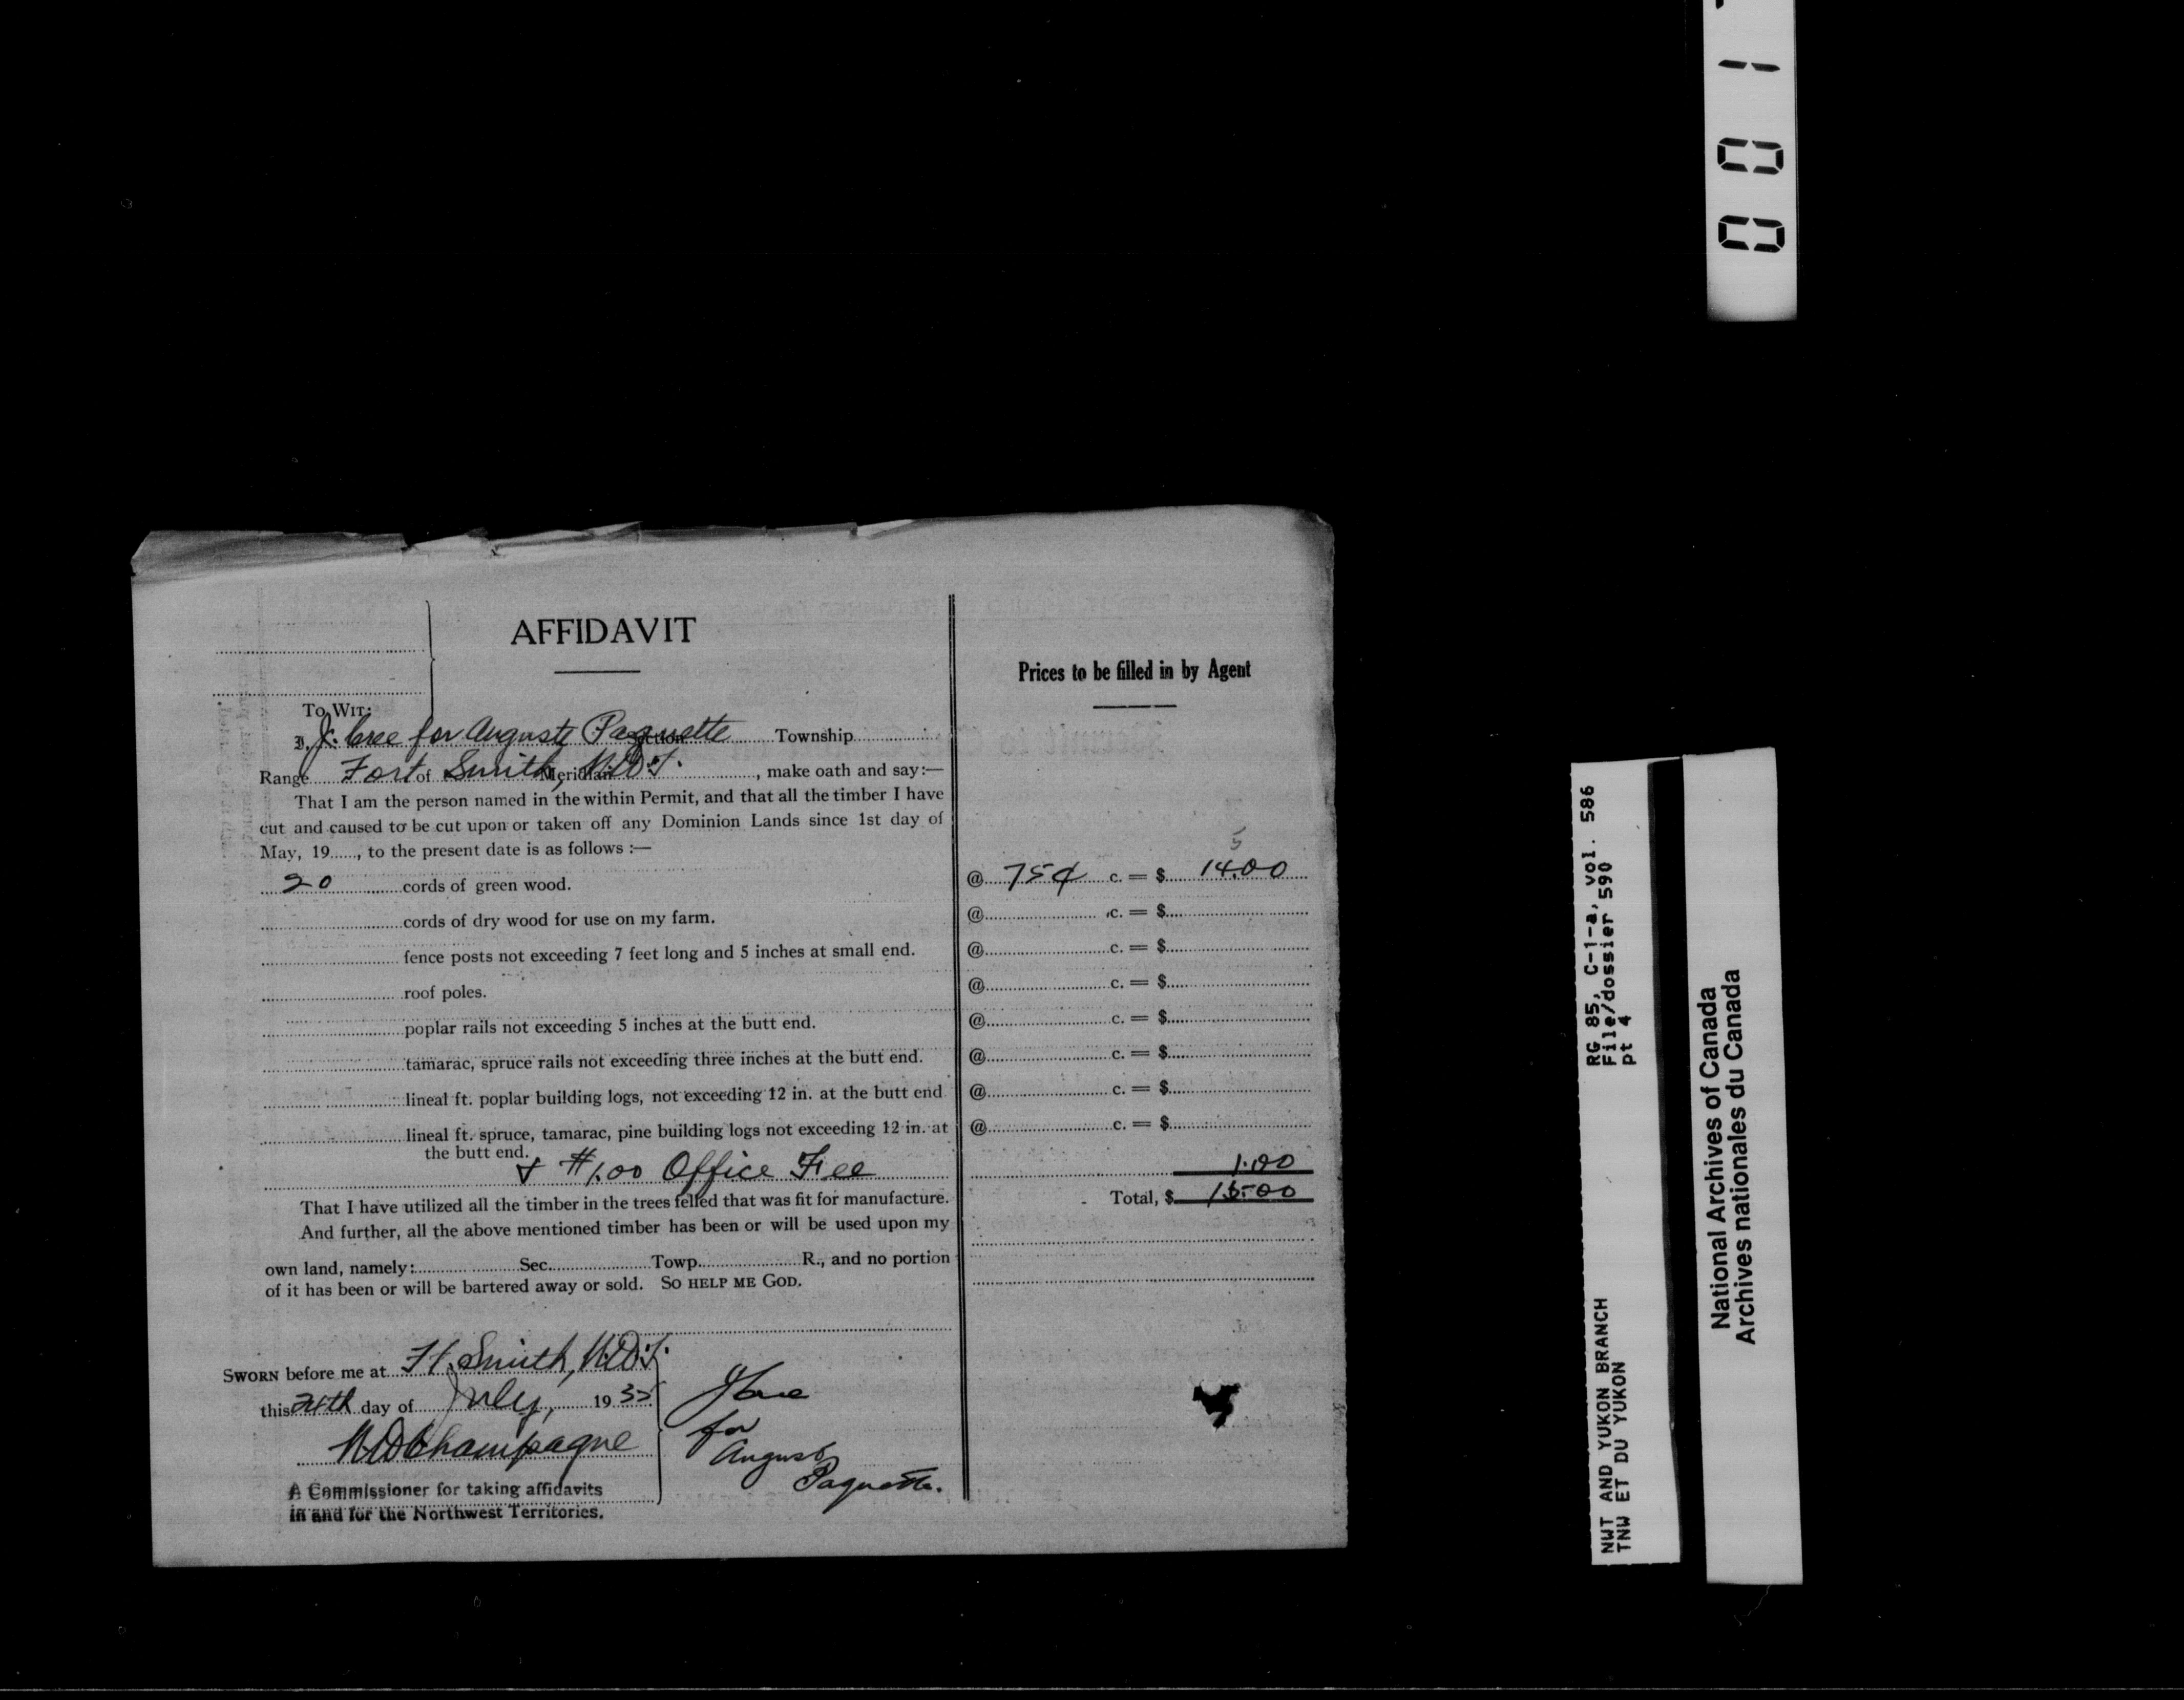 AFFIDAVIT
To Wit:
I, J. Cree for Auguste Paquette Section Township
Range Fort of Smith, Meridian N.W.T. , make oath and say:—
That I am the person named in the within Permit, and that all the timber I have
cut and caused to be cut upon or taken off any Dominion Lands since 1st day of
May, 19......, to the present date is as follows :—
20 cords of green wood.
cords of dry wood for use on my farm.
fence posts not exceeding 7 feet long and 5 inches at small end.
roof poles.
poplar rails not exceeding 5 inches at the butt end.
tamarac, spruce rails not exceeding three inches at the butt end.
lineal ft. poplar building logs, not exceeding 12 in. at the butt end
lineal ft. spruce, tamarac, pine building logs not exceeding 12 in. at
the butt end.
+ $1.00 Office Fee
That I have utilized all the timber in the trees felled that was fit for manufacture.
And further, all the above mentioned timber has been or will be used upon my
own land, namely: Sec. Towp. R., and no portion
of it has been or will be bartered away or sold. So help me God.
Sworn before me at Ft. Smith, N.W.T.
this 24th day of July, 19
Champagne
A Commissioner for taking affidavits
in and for the Northwest Territories.
for
August
Paquette.
Prices to be filled in by Agent
5
@ 75¢ c. = $ 14.00
@ c. = $
@ c. = $
@ c. = $
@ c. = $
@ c. = $
@ c. = $
@ c. = $
1.00
Total, $ 15.00
RG 85, C-1-a, vol. 586
File/dossier 590
pt 4
NWT AND YUKON BRANCH
TNW ET DU YUKON
National Archives of Canada
Archives nationales du Canada
0 0 1